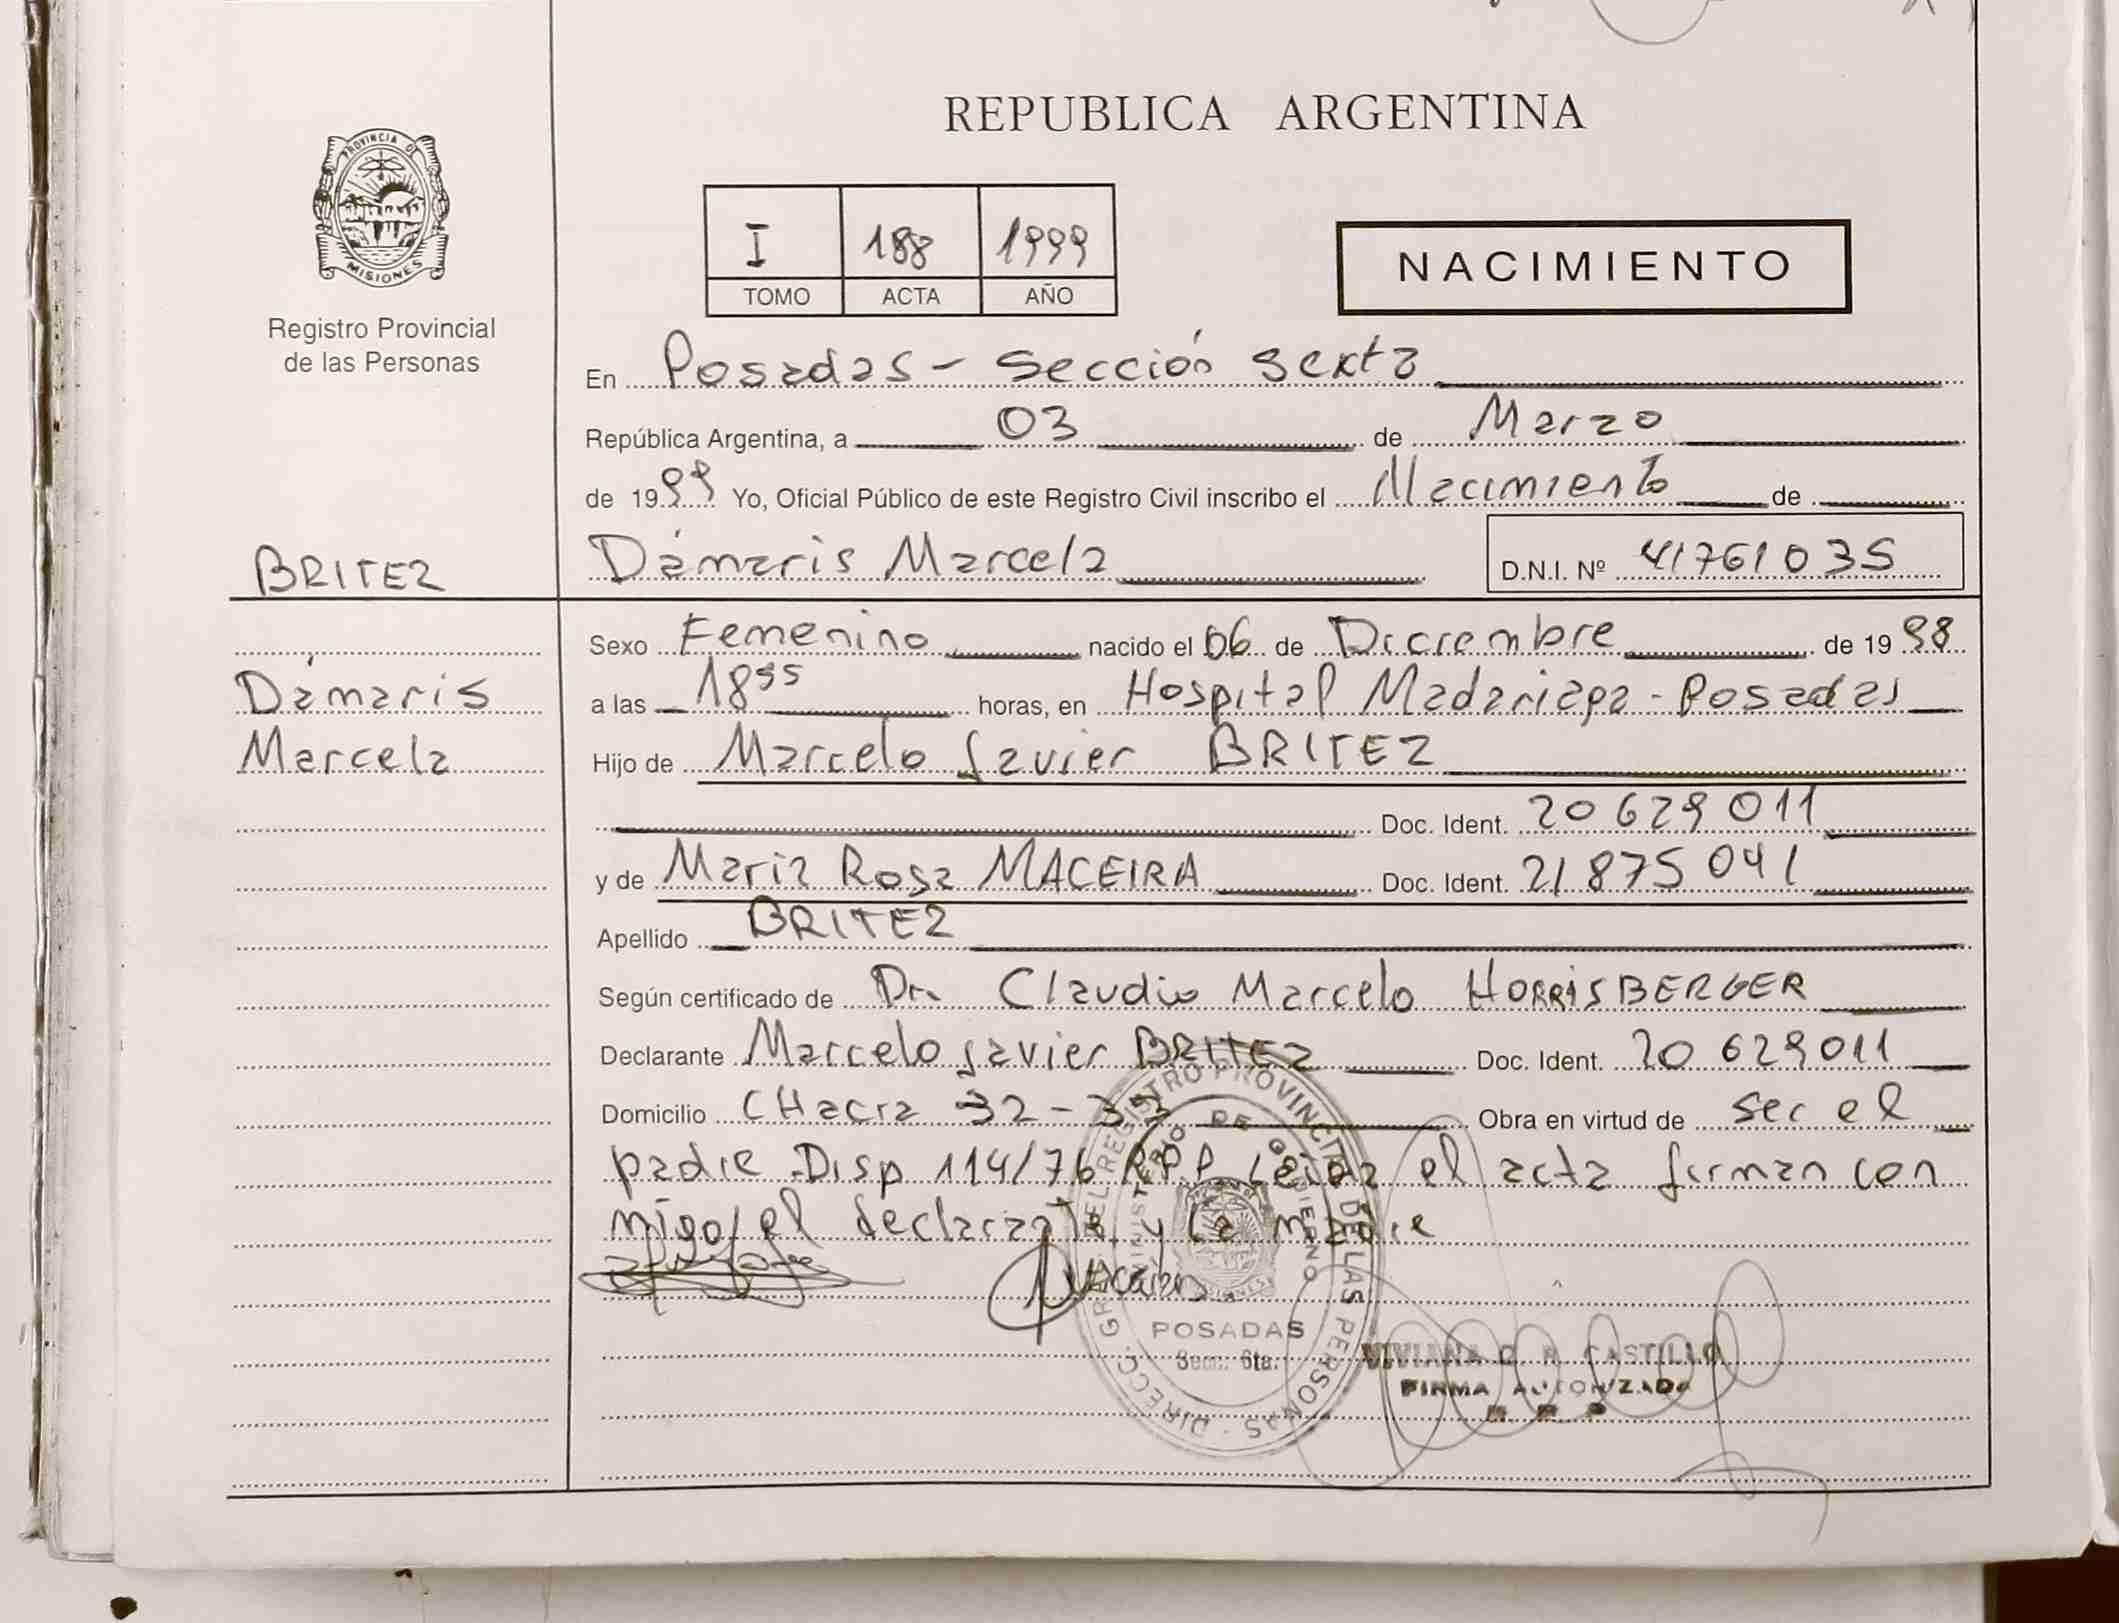 REPUBLICA ARGENTINA
PROVINCIA DE
MISIONES
Registro Provincial
de las Personas
I 188 1999
TOMO ACTA AÑO
NACIMIENTO
En Posadas - Sección Sexta
República Argentina, a 03 de Marzo
de 1999 Yo, Oficial Público de este Registro Civil inscribo el Nacimiento de
BRITEZ
Dámaris Marcela D.N.I. Nº 41761035
Sexo Femenino nacido el 06 de Diciembre de 1998
Dámaris
a las 18 55 horas, en Hospital Madariaga - Posadas
Marcela
Hijo de Marcelo Javier BRITEZ
Doc. Ident. 20 629 011
y de Maria Rosa MACEIRA Doc. Ident. 21 875 041
Apellido BRITEZ
Según certificado de Dr. Claudio Marcelo HORRISBERGER
Declarante Marcelo Javier BRITEZ Doc. Ident. 20 629011
Domicilio CHacra 32-33 Obra en virtud de ser el
padre Disp 114/76 R.P.P. Leida el acta firman con
migo, el declarante y la madre
DIRECC. GRAL. DEL REGISTRO PROVINCIAL DE LAS PERSONAS
MINISTERIO DE GOBIERNO
POSADAS
Secc. 6ta.
VIVIANA CASTILLO
FIRMA AUTORIZADA